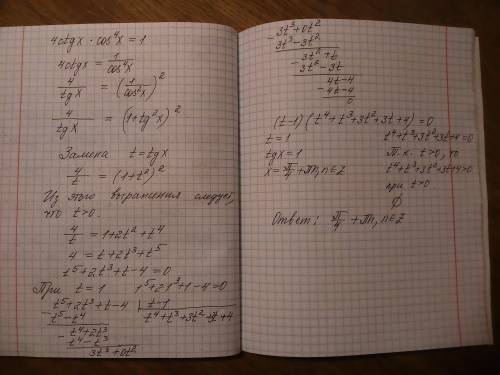 4ctgx · cos⁴x = 1
4ctgx = 1/cos⁴x
4/tgx = (1/cos²x)²
4/tgx = (1+tg²x)²
Замена t=tgx
4/t = (1+t²)²
Из этого выражения следует,
что t>0.
4/t = 1+2t²+t⁴
4 = t+2t³+t⁵
t⁵+2t³+t-4=0
При t=1 1⁵+2·1³+1-4=0
t⁵+2t³+t-4 | t-1
- t⁵-t⁴ t⁴+t³+3t²+3t+4
- t⁴+2t³
t⁴-t³
3t³+0t²
- 3t³+0t²
3t³-3t²
- 3t²+t
3t²-3t
- 4t-4
4t-4
0
(t-1)(t⁴+t³+3t²+3t+4)=0
t=1 t⁴+t³+3t²+3t+4=0
tgx=1 т.к. t>0, то
x=π/4+πn, n∈Z t⁴+t³+3t²+3t+4>0
при t>0
∅
Ответ: π/4+πn, n∈Z